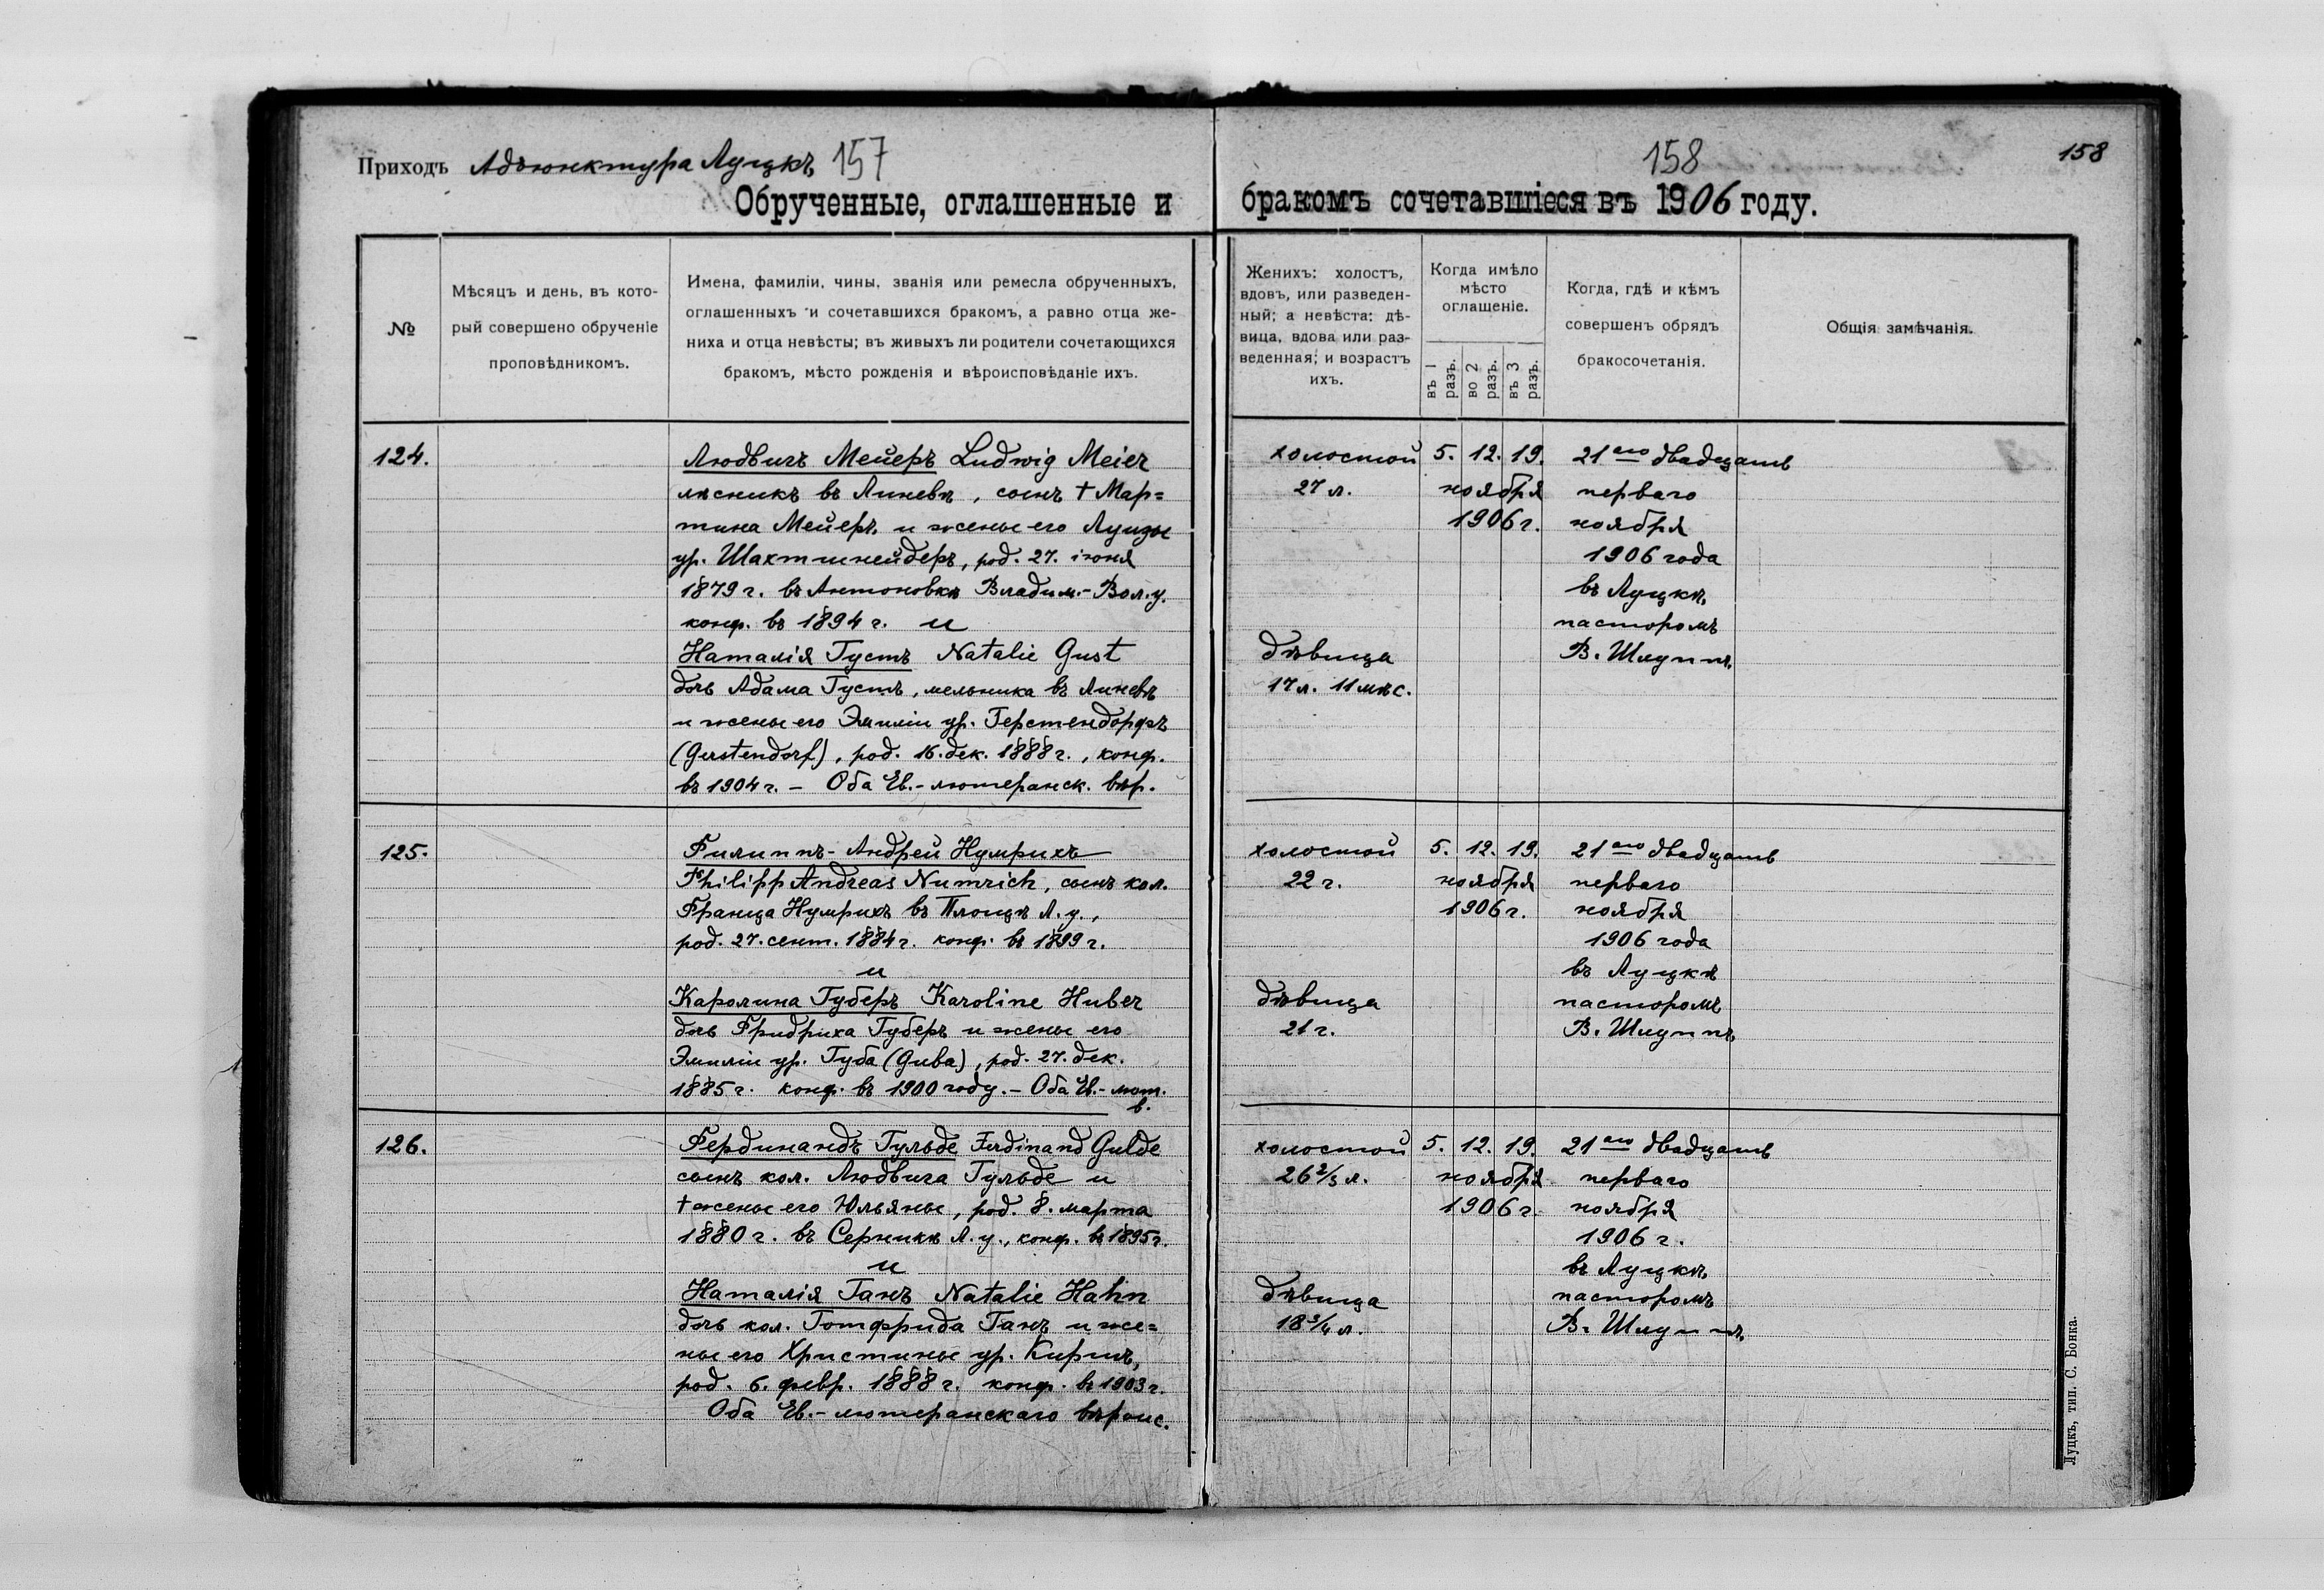 Приходъ Адъюнктура Луцкъ 157
Обрученные, оглашенные и
№
Мѣсяцъ и день, въ кото-
рый совершено обрученіе
проповѣдникомъ.
Имена, фамиліи, чины, званія или ремесла обрученныхъ,
оглашенныхъ и сочетавшихся бракомъ, а равно отца же-
ниха и отца невѣсты; въ живыхъ ли родители сочетающихся
бракомъ, мѣсто рожденія и вѣроисповѣданіе ихъ.
124.
Людвигъ Мейеръ Ludwig Meier
лѣсникъ въ Линевѣ, сынъ † Мар=
тина Мейеръ и жены его Луизы
ур. Шахтшнейдеръ, род. 27. іюня
1879 г. въ Антоновкѣ Владим.-Вол.у.
конф. въ 1894 г. и
Наталія Густъ Natalie Gust
дочь Адама Густъ, мельника въ Линевѣ
и жены его Эмиліи ур. Герстендорфъ
(Gerstendorf), род. 16. дек. 1888 г., конф.
въ 1904 г. – Оба Ев.-лютеранск. вѣр.
125.
Филиппъ-Андрей Нумрихъ
Philipp Andreas Numrich, сынъ кол.
Франца Нумрихъ въ Площѣ Л. у.,
род. 27. сент. 1884 г. конф. въ 1899 г.
и
Каролина Губеръ Karoline Huber
дочь Фридриха Губеръ и жены его
Эмиліи ур. Губа (Guba), род. 27. дек.
1885 г. конф. въ 1900 году. – Оба Ев.-лют.
в.
126.
Фердинандъ Гульде Ferdinand Gulde
сынъ кол. Людвига Гульде и
† жены его Юльяны, род. 8. марта
1880 г. въ Серникѣ Л. у., конф. въ 1895 г.
и
Наталія Ганъ Natalie Hahn
дочь кол. Готфрида Ганъ и же=
ны его Христины ур. Киршъ,
род. 6. февр. 1888 г. конф. въ 1903 г.
Оба Ев.-лютеранскаго вѣроис.
158
158
бракомъ сочетавшіеся въ 1906 году.
Женихъ: холостъ,
вдовъ, или разведен-
ный; а невѣста: дѣ-
вица, вдова или раз-
веденная; и возрастъ
ихъ.
Когда имѣло
мѣсто
оглашеніе.
въ 1 разъ.
во 2 разъ.
въ 3 разъ.
Когда, гдѣ и кѣмъ
совершенъ обрядъ
бракосочетанія.
Общія замѣчанія.
холостой 5. 12. 19. 21 аго двадцать
27 л. ноября перваго
1906 г. ноября
1906 года
въ Луцкѣ
пасторомъ
дѣвица В. Шлуппъ
17 л. 11 мѣс.
холостой 5. 12. 19. 21 аго двадцать
22 г. ноября перваго
1906 г. ноября
1906 года
въ Луцкѣ
дѣвица пасторомъ
21 г. В. Шлуппъ
холостой 5. 12. 19. 21 аго двадцать
26 2/3 л. ноября перваго
1906 г. ноября
1906 г.
въ Луцкѣ
дѣвица пасторомъ
18 3/4 л. В. Шлуппъ
Луцкъ, тип. С. Бонка.